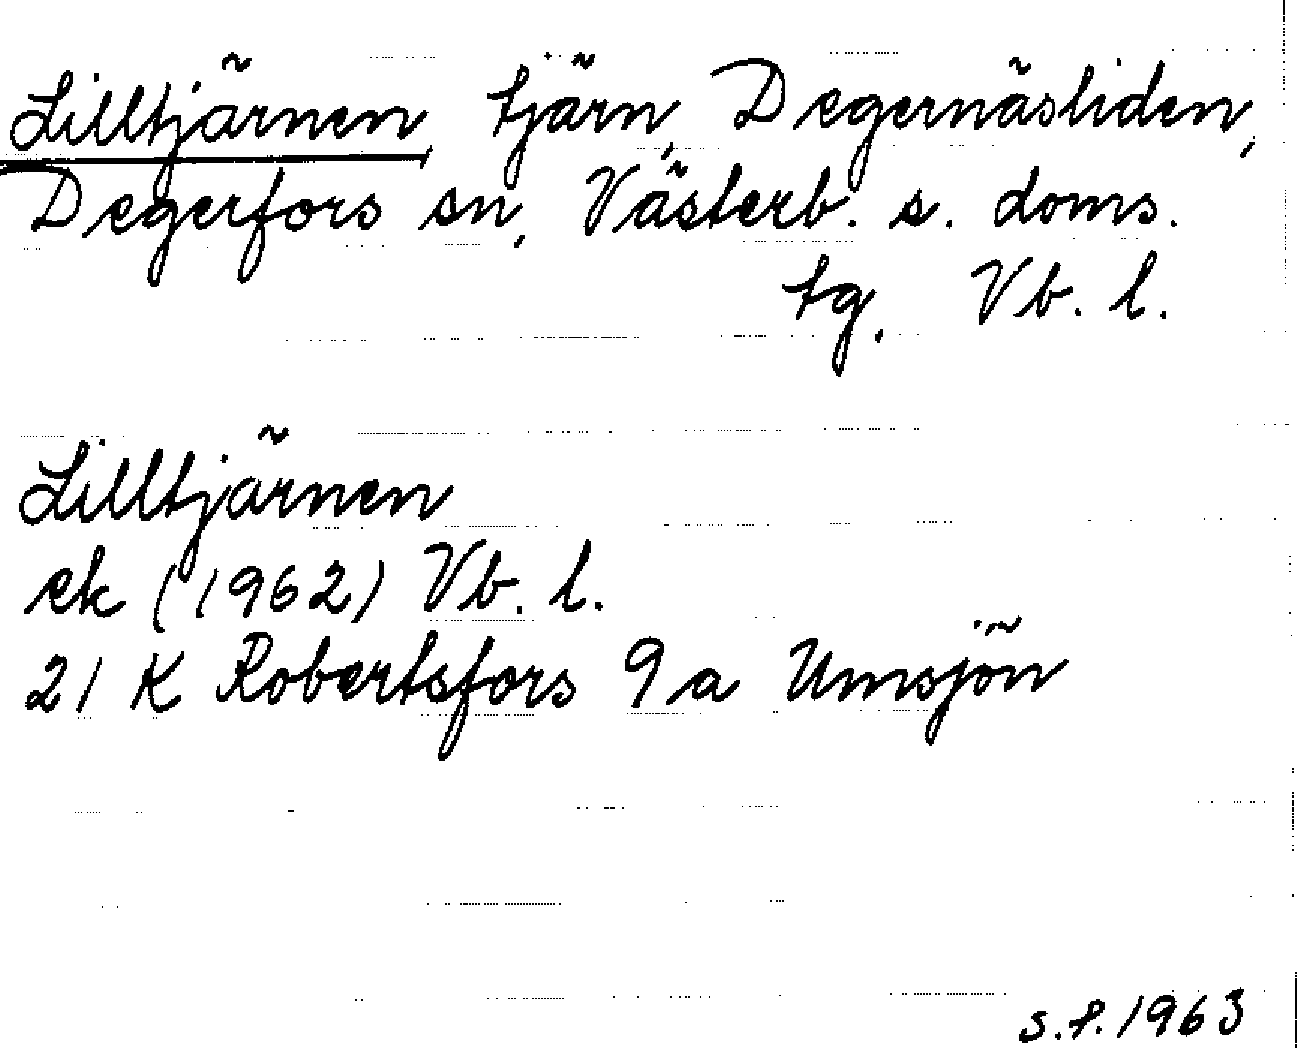 Lilltjärnen, tjärn, Degernäsliden,
Degerfors sn, Västerb. s. doms.
tg. Vb. l.
Lilltjärnen
ek (1962) Vb. l.
21 K Robertsfors 9 a Umsjön
s.f. 1963